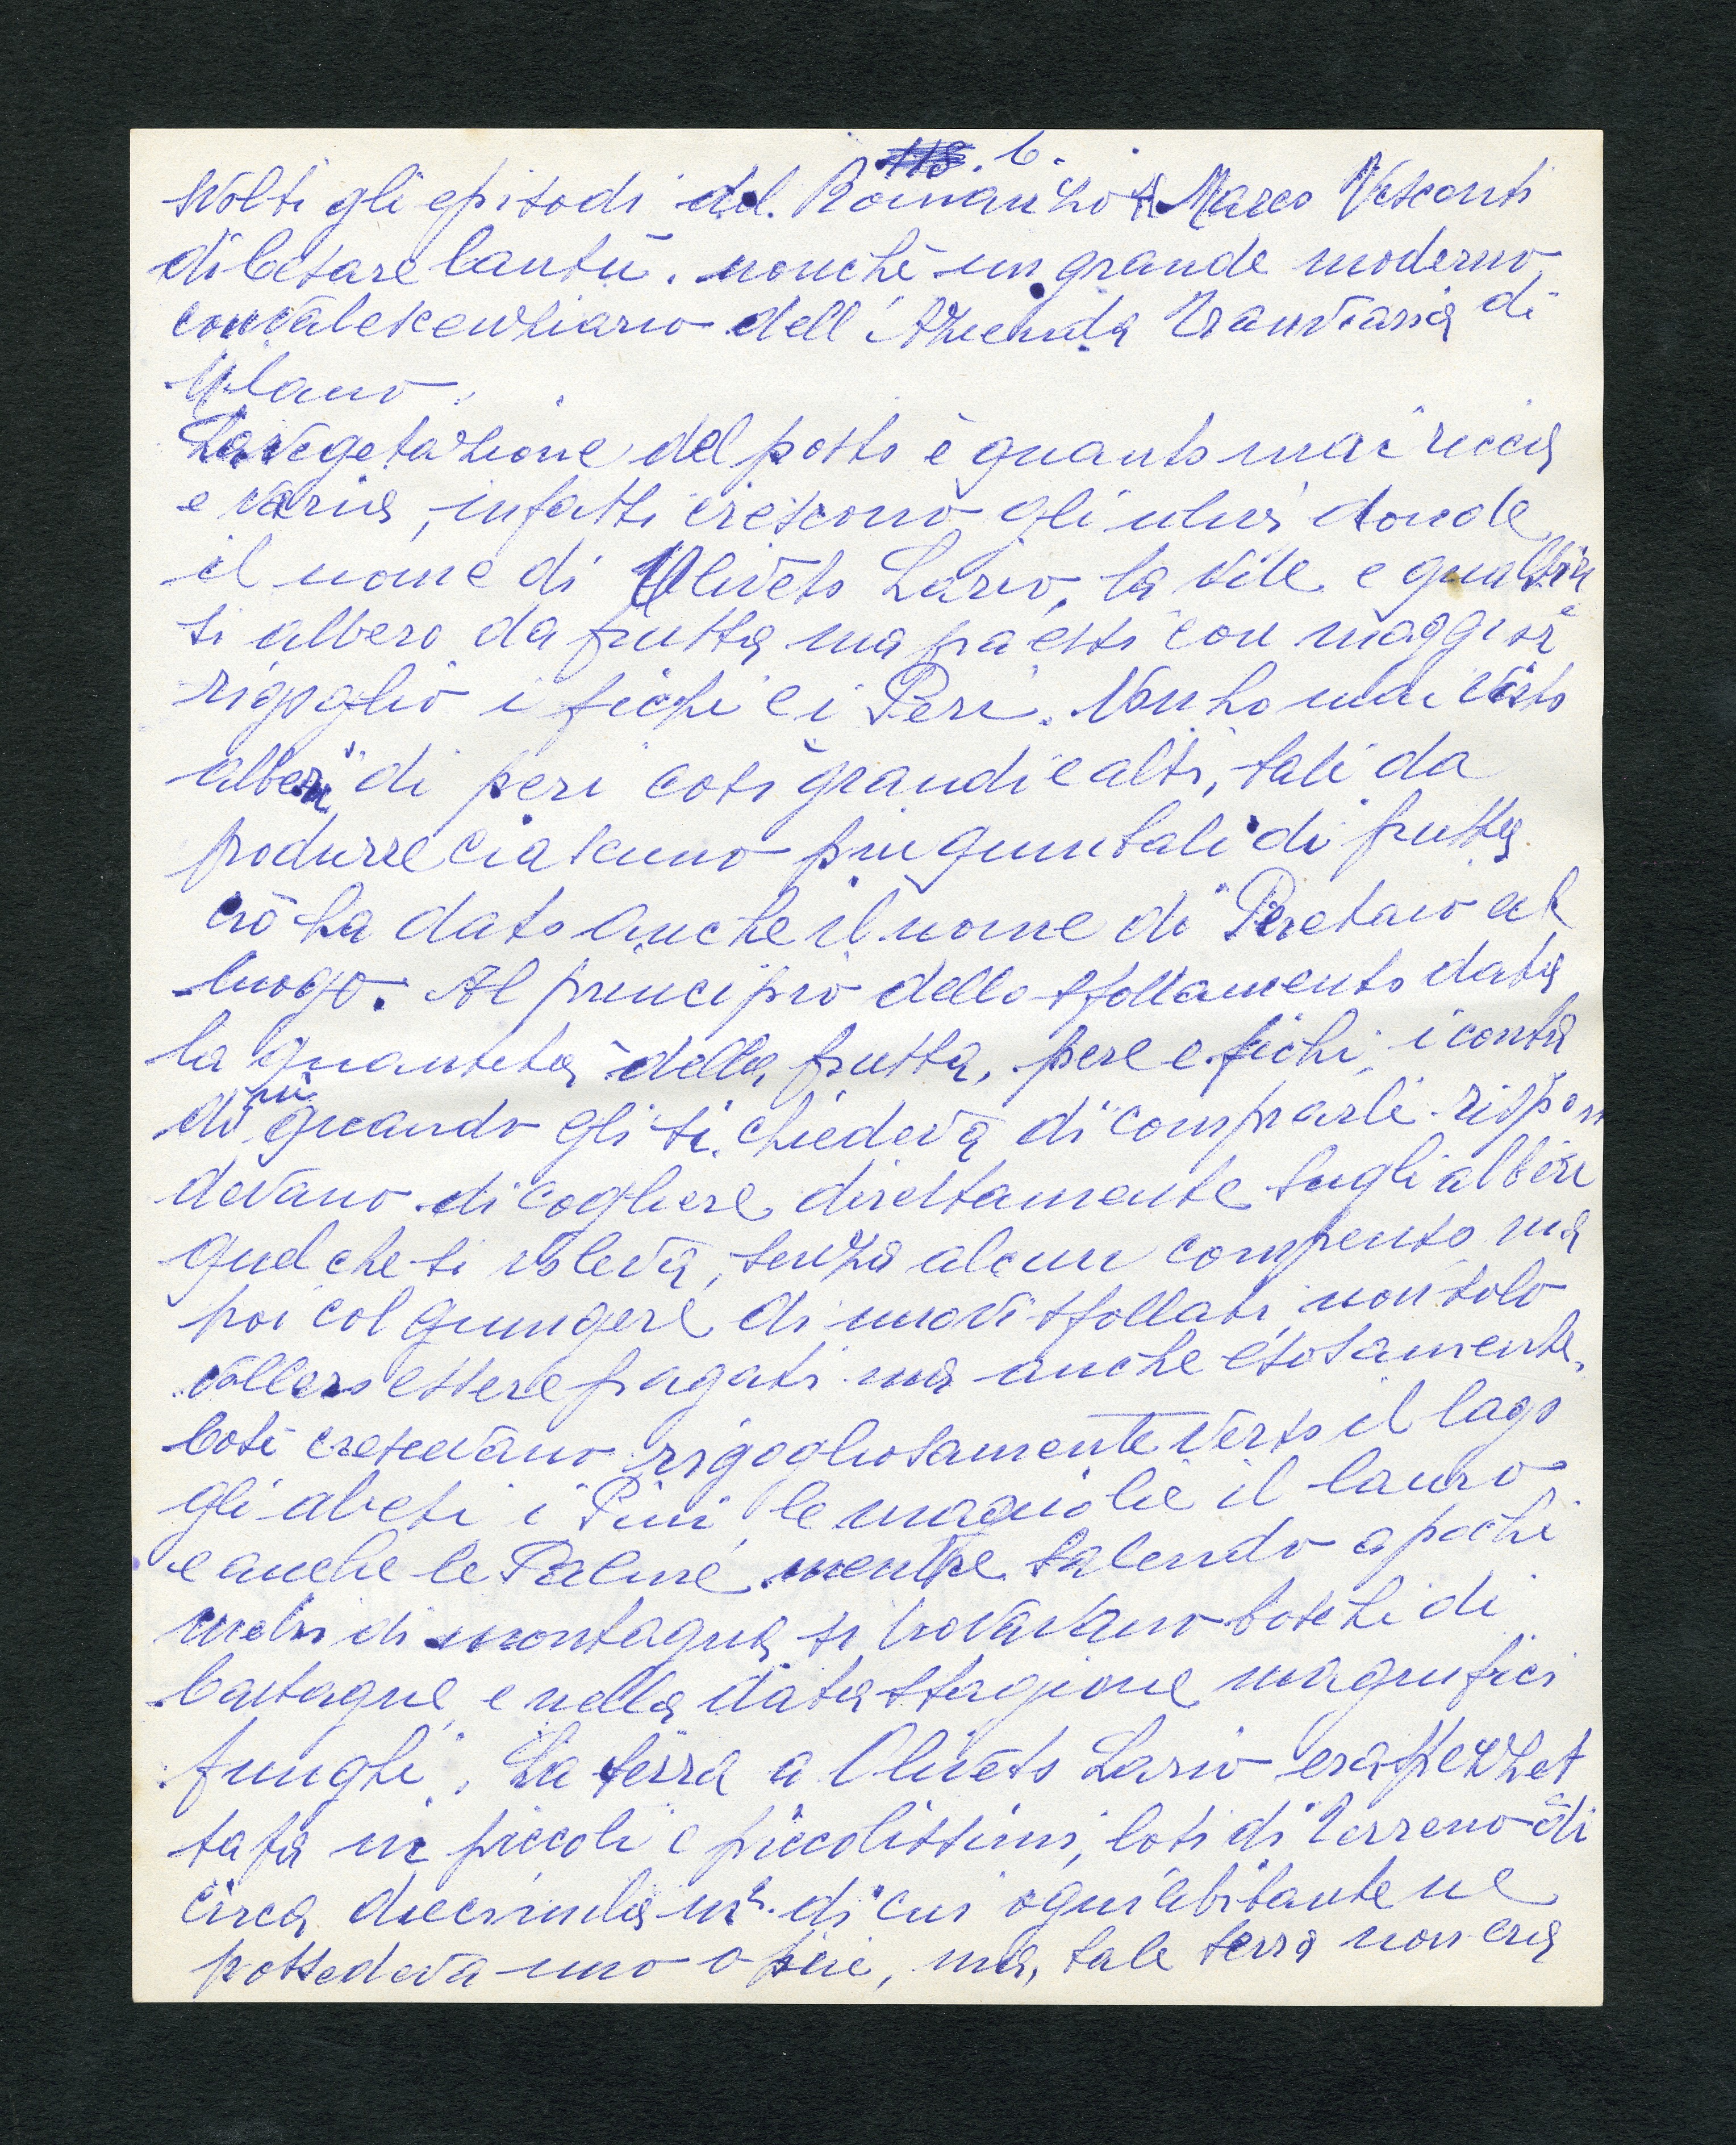 118. 6.
svolti gli episodi del Romanzo Marco Visconti
di Cesare Cantù. nonchè un grande moderno
convalescenziario dell'Azienda Tranviaria di
Milano.
La vegetazione del posto è quanto mai ricca
e varia, infatti crescono gli ulivi donde
il nome di Oliveto Lario, la vite e qualsia
si albero da frutta ma fra essi con maggior
rigoglio i fichi e i Peri. Non ho mai visto
alberi di peri così grandi e alti, tali da
produrre ciascuno più quintali di frutta
ciò ha dato anche il nome di Peretaio al
luogo. Al principio dello sfollamento data
la quantità della frutta, pere e fichi, i conta
dini quando gli si chiedeva di comprarle rispon
devano di cogliere direttamente sugli alberi
quel che si voleva, senza alcun compenso ma
poi col giungere di nuovi sfollati non solo
vollero essere pagati ma anche esosamente.
Così crescevano rigogliosamente verso il lago
gli abeti i Pini le magnolie il lauro
e anche le Palme, mentre salendo a pochi
metri di montagna si trovavano boschi di
Castagne e nella data stagione magnifici
funghi. La terra a Oliveto Lario era spezzet
tata in piccoli e piccolissimi, loti di terreno di
circa diecimila m². di cui ogni abitante ne
possedeva uno o più, ma, tale terra non era